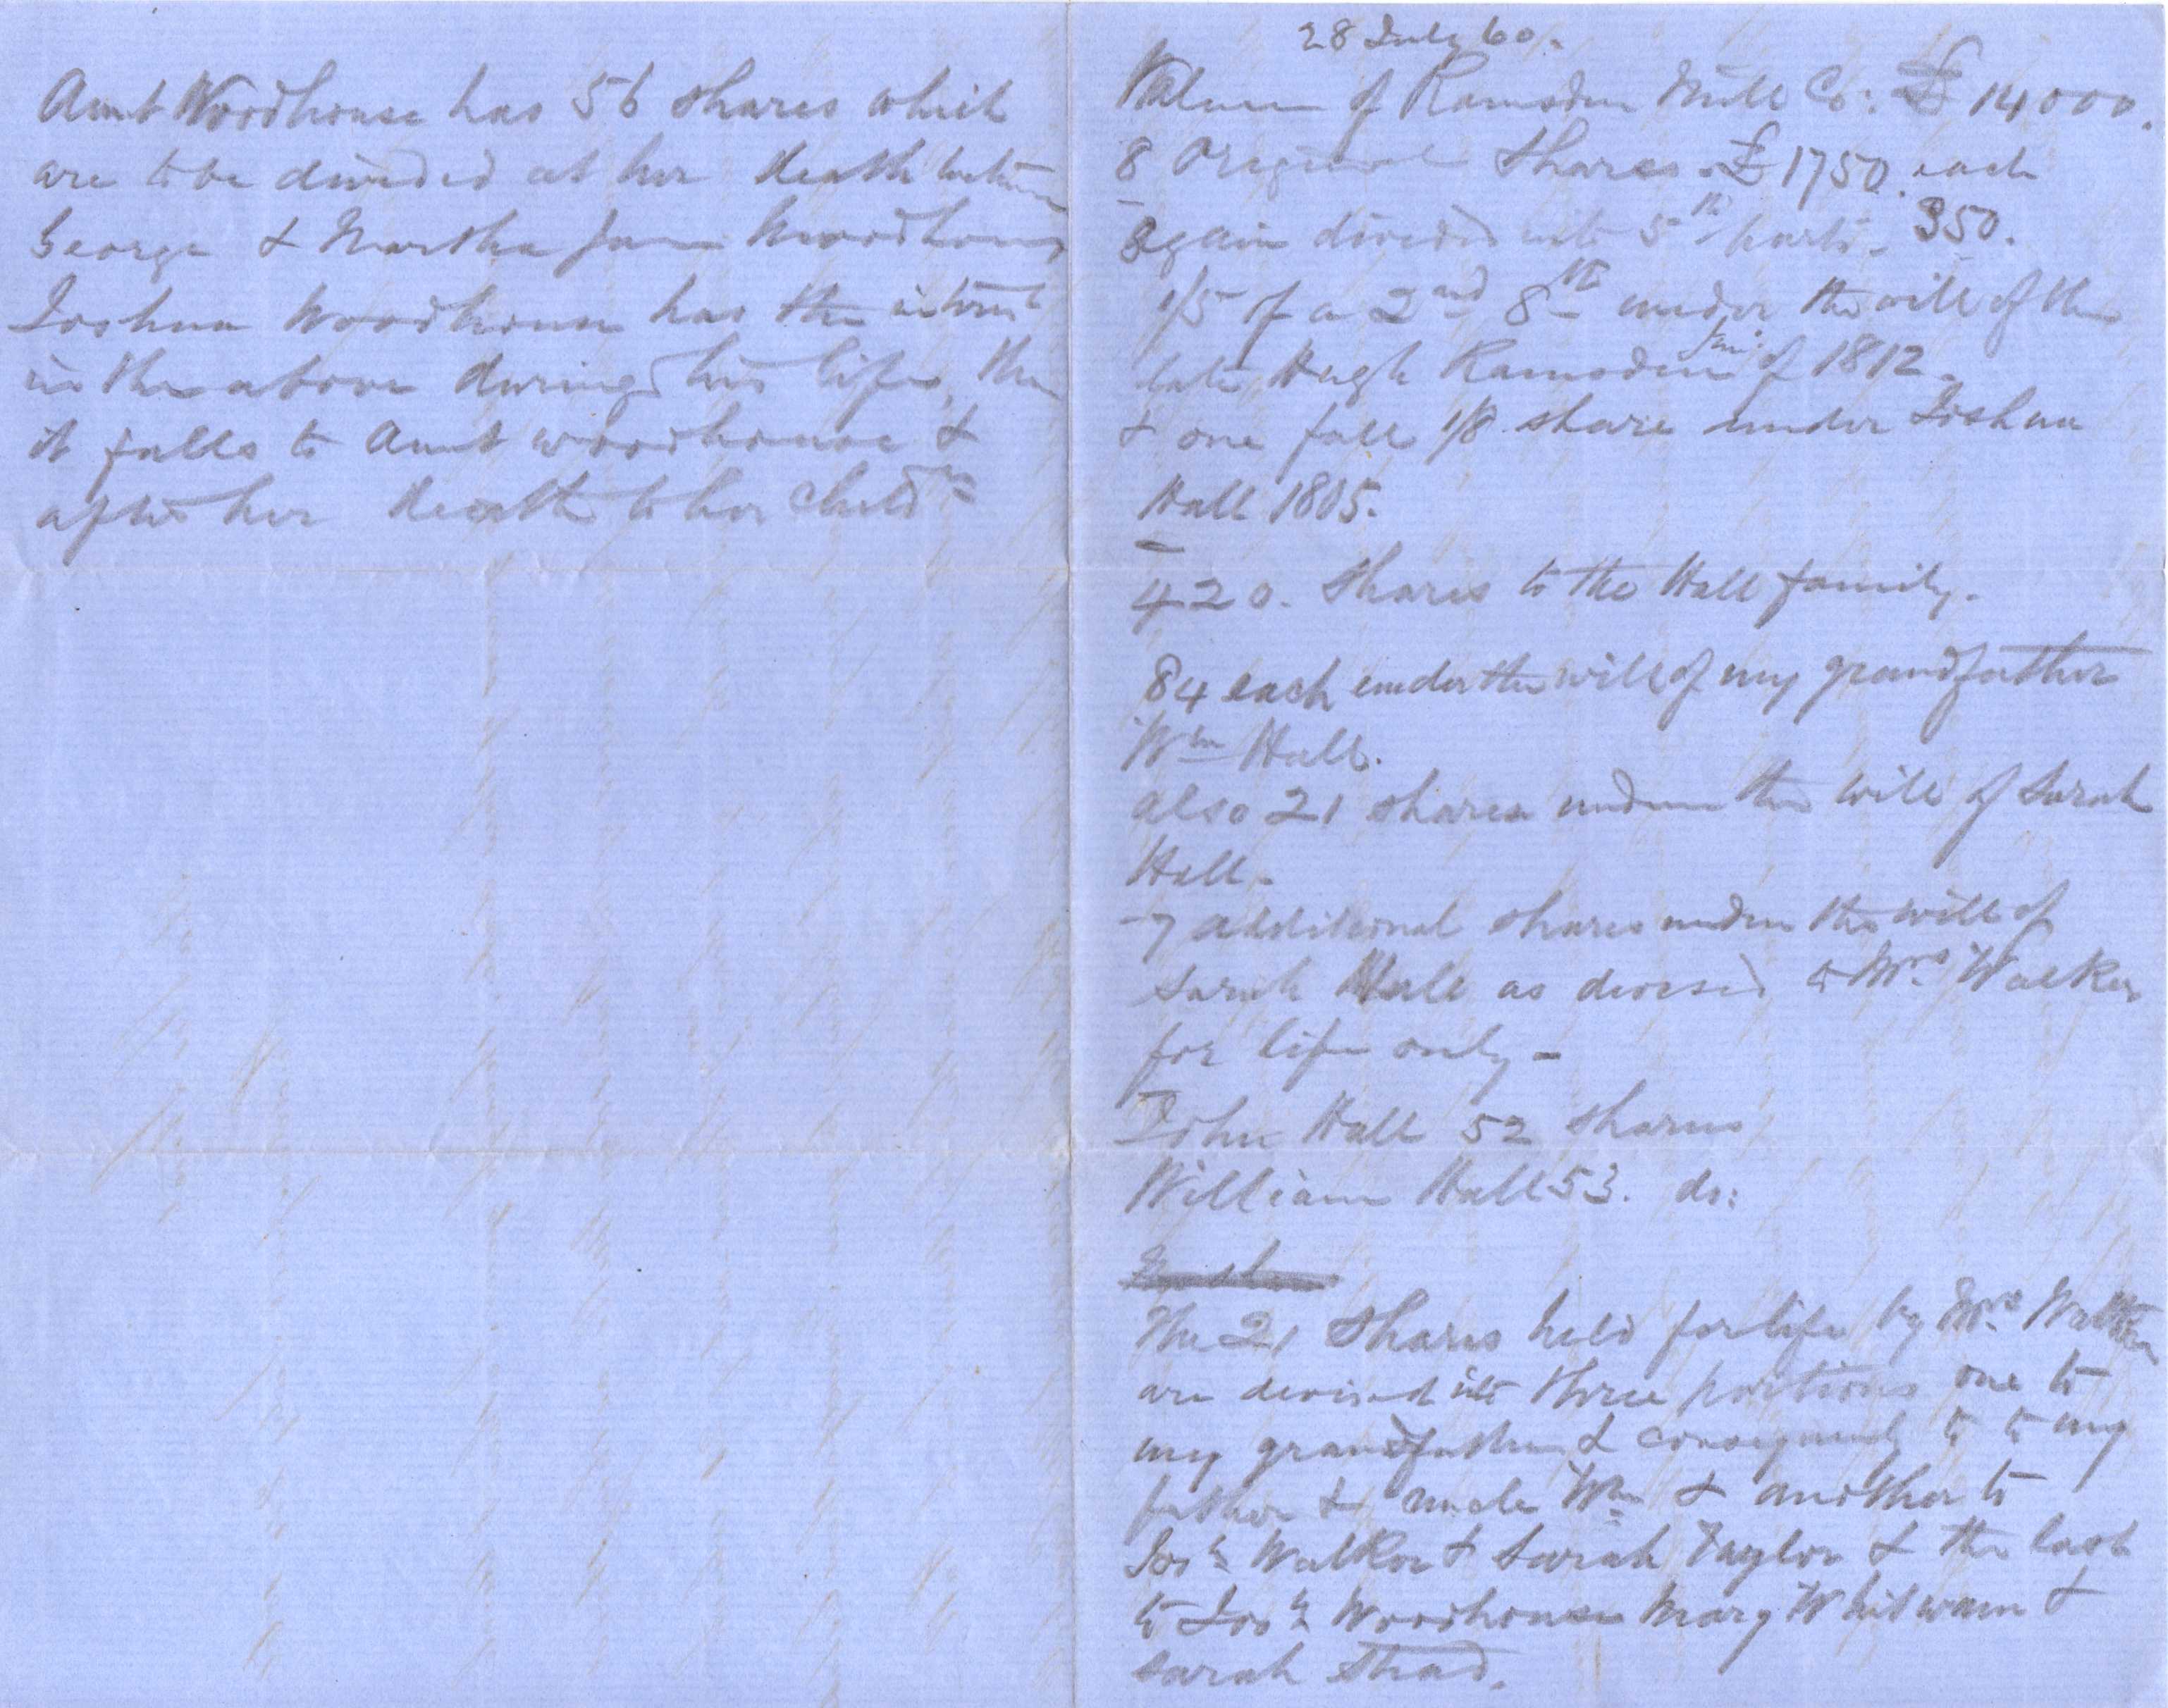 Aunt Woodhouse has 56 shares which
are to be divided at her death between
George & Martha Jane Woodhouse
Joshua Woodhouse has the interest
in the above during his life, then
it falls to Aunt Woodhouse &
after her death to her child<sup>n</sup>
28 July 60.
Value of Ramsden Mill Co: £14000.
8 Original Shares. £1750. each
again divided into 5<sup>th</sup> parts. 350.
1/5 of a 2<sup>nd</sup> 8<sup>th</sup> under the will of the
late Hugh Ramsden Jun<sup>r</sup> of 1812.
& one full 1/8 share under Joshua
Hall 1805.
420. Shares to the Hall family.
84 each under the will of my grandfather
W<sup>m</sup> Hall.
also 21 shares under the will of Sarah
Hall.
7 additional shares under the will of
Sarah Hall as devised to M<sup>rs</sup> Walker
for life only -
John Hall 52 shares
William Hall 53. do:
The 21 Shares held for life by M<sup>rs</sup> Walker
are devised into three portions one to
my grandfather & consequently to to my
father & uncle W<sup>m</sup> & another to
Jos<sup>h</sup> Walker & Sarah Taylor & the last
to Jos<sup>h</sup> Woodhouse Mary Whitwam &
Sarah Shad.